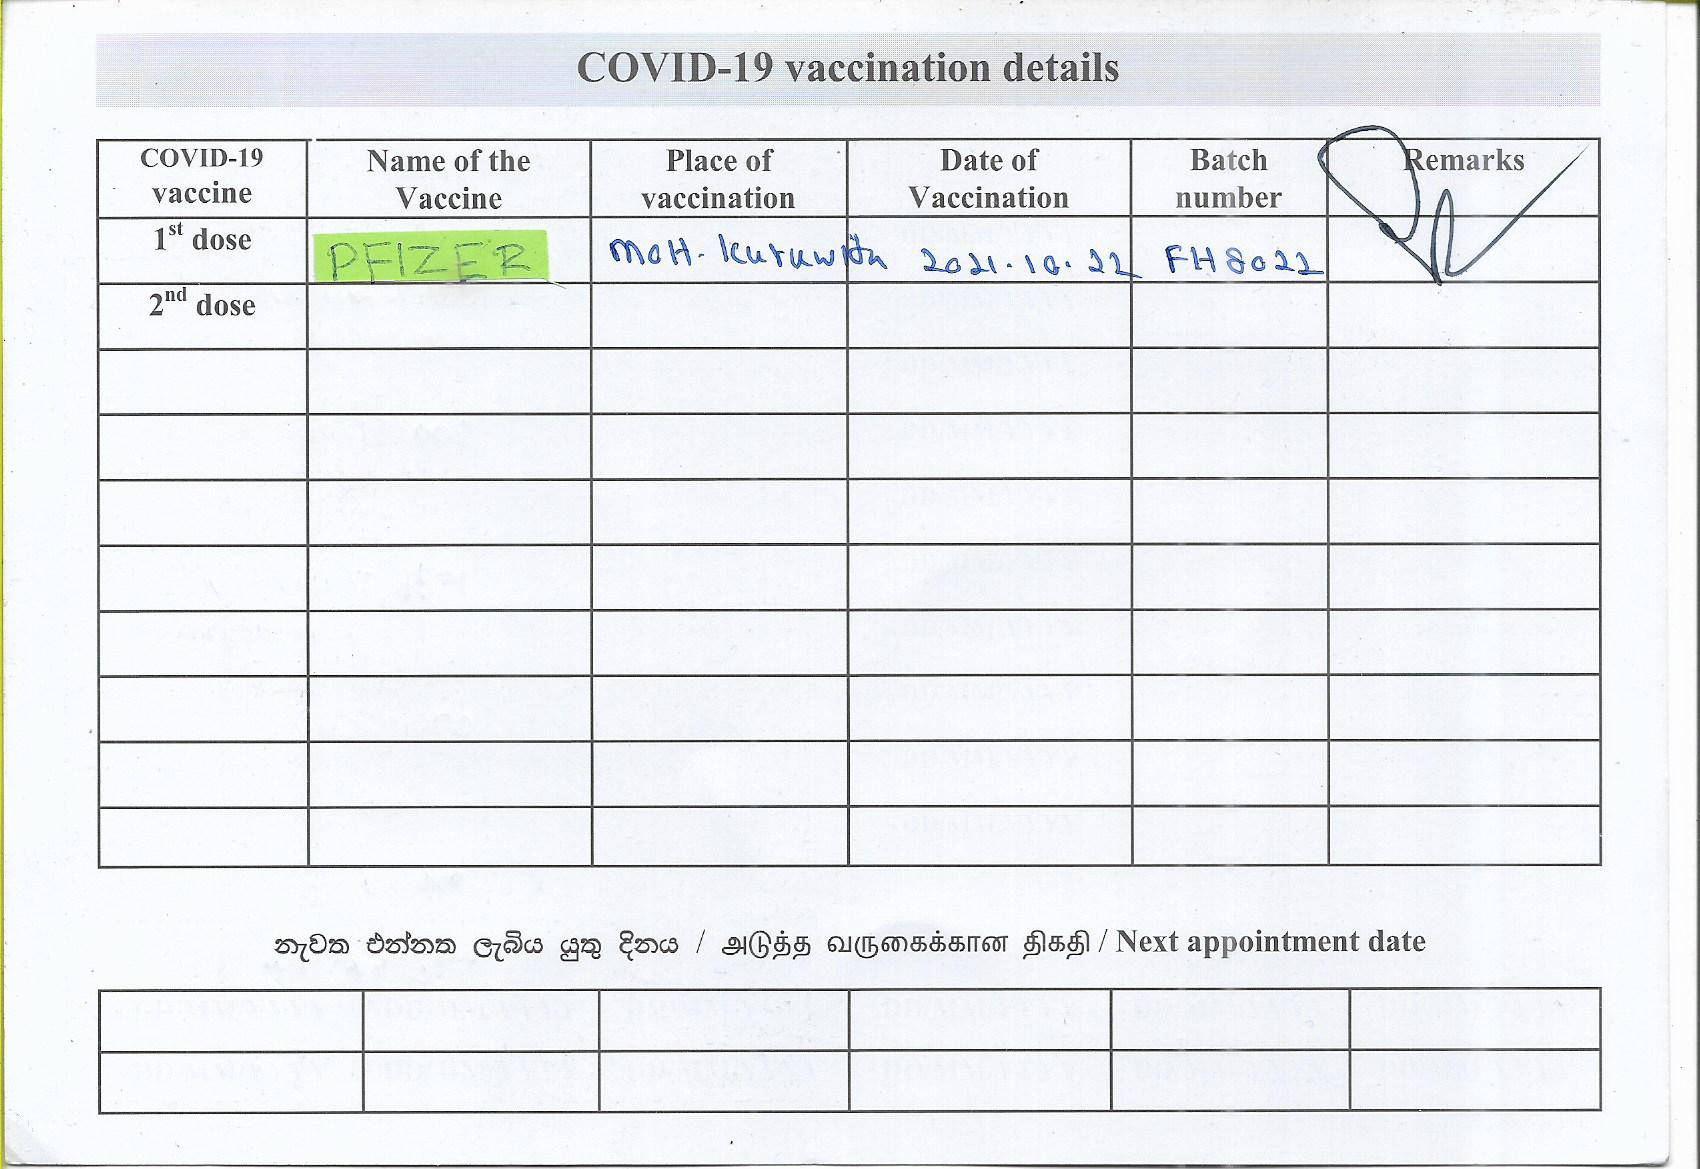 COVID-19 vaccination details
COVID-19 vaccine
Name of the Vaccine
Place of vaccination
Date of Vaccination
Batch number
Remarks
1st dose PFIZER MOH. Kuruwita 2021.10.22 FH8022
2nd dose
නැවත එන්නත ලැබිය යුතු දිනය / அடுத்த வருகைக்கான திகதி / Next appointment date